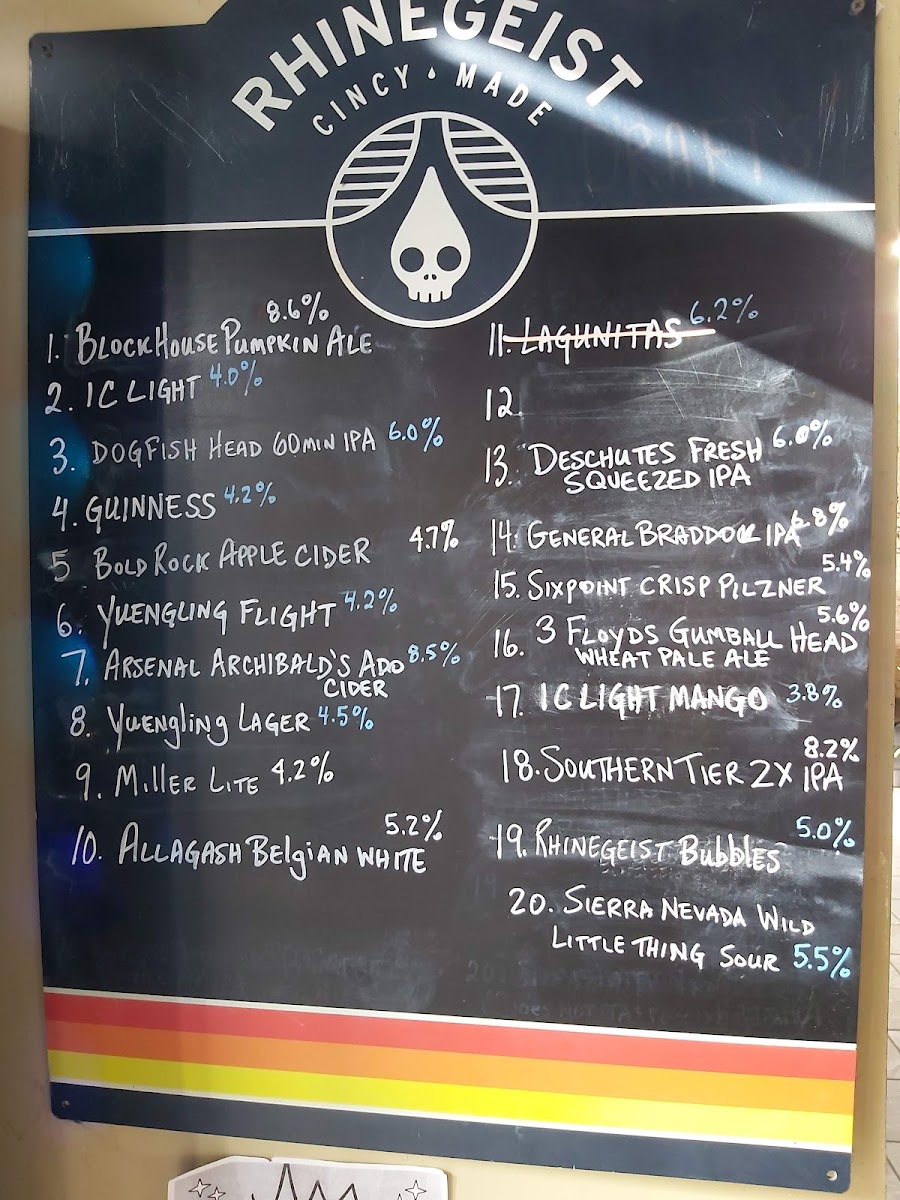 RHINEGEIST
CINCY • MADE
DRAFTS
8.6%
1. BLOCKHOUSE PUMPKIN ALE
2. IC LIGHT 4.0%
3. DOGFISH HEAD 60MIN IPA 6.0%
4. GUINNESS 4.2%
5 BOLD ROCK APPLE CIDER 4.7%
6. YUENGLING FLIGHT 4.2%
7. ARSENAL ARCHIBALD'S ADO 8.5%
CIDER
8. YUENGLING LAGER 4.5%
9. MILLER LITE 4.2%
5.2%
10. ALLAGASH BELGIAN WHITE
11. LAGUNITAS 6.2%
12.
13. DESCHUTES FRESH 6.0%
SQUEEZED IPA
14. GENERAL BRADDOCK IPA 6.8%
5.4%
15. SIXPOINT CRISP PILZNER
5.6%
16. 3 FLOYDS GUMBALL HEAD
WHEAT PALE ALE
17. IC LIGHT MANGO 3.8%
8.2%
18. SOUTHERN TIER 2X IPA
5.0%
19. RHINEGEIST Bubbles
20. SIERRA NEVADA WILD
LITTLE THING SOUR 5.5%